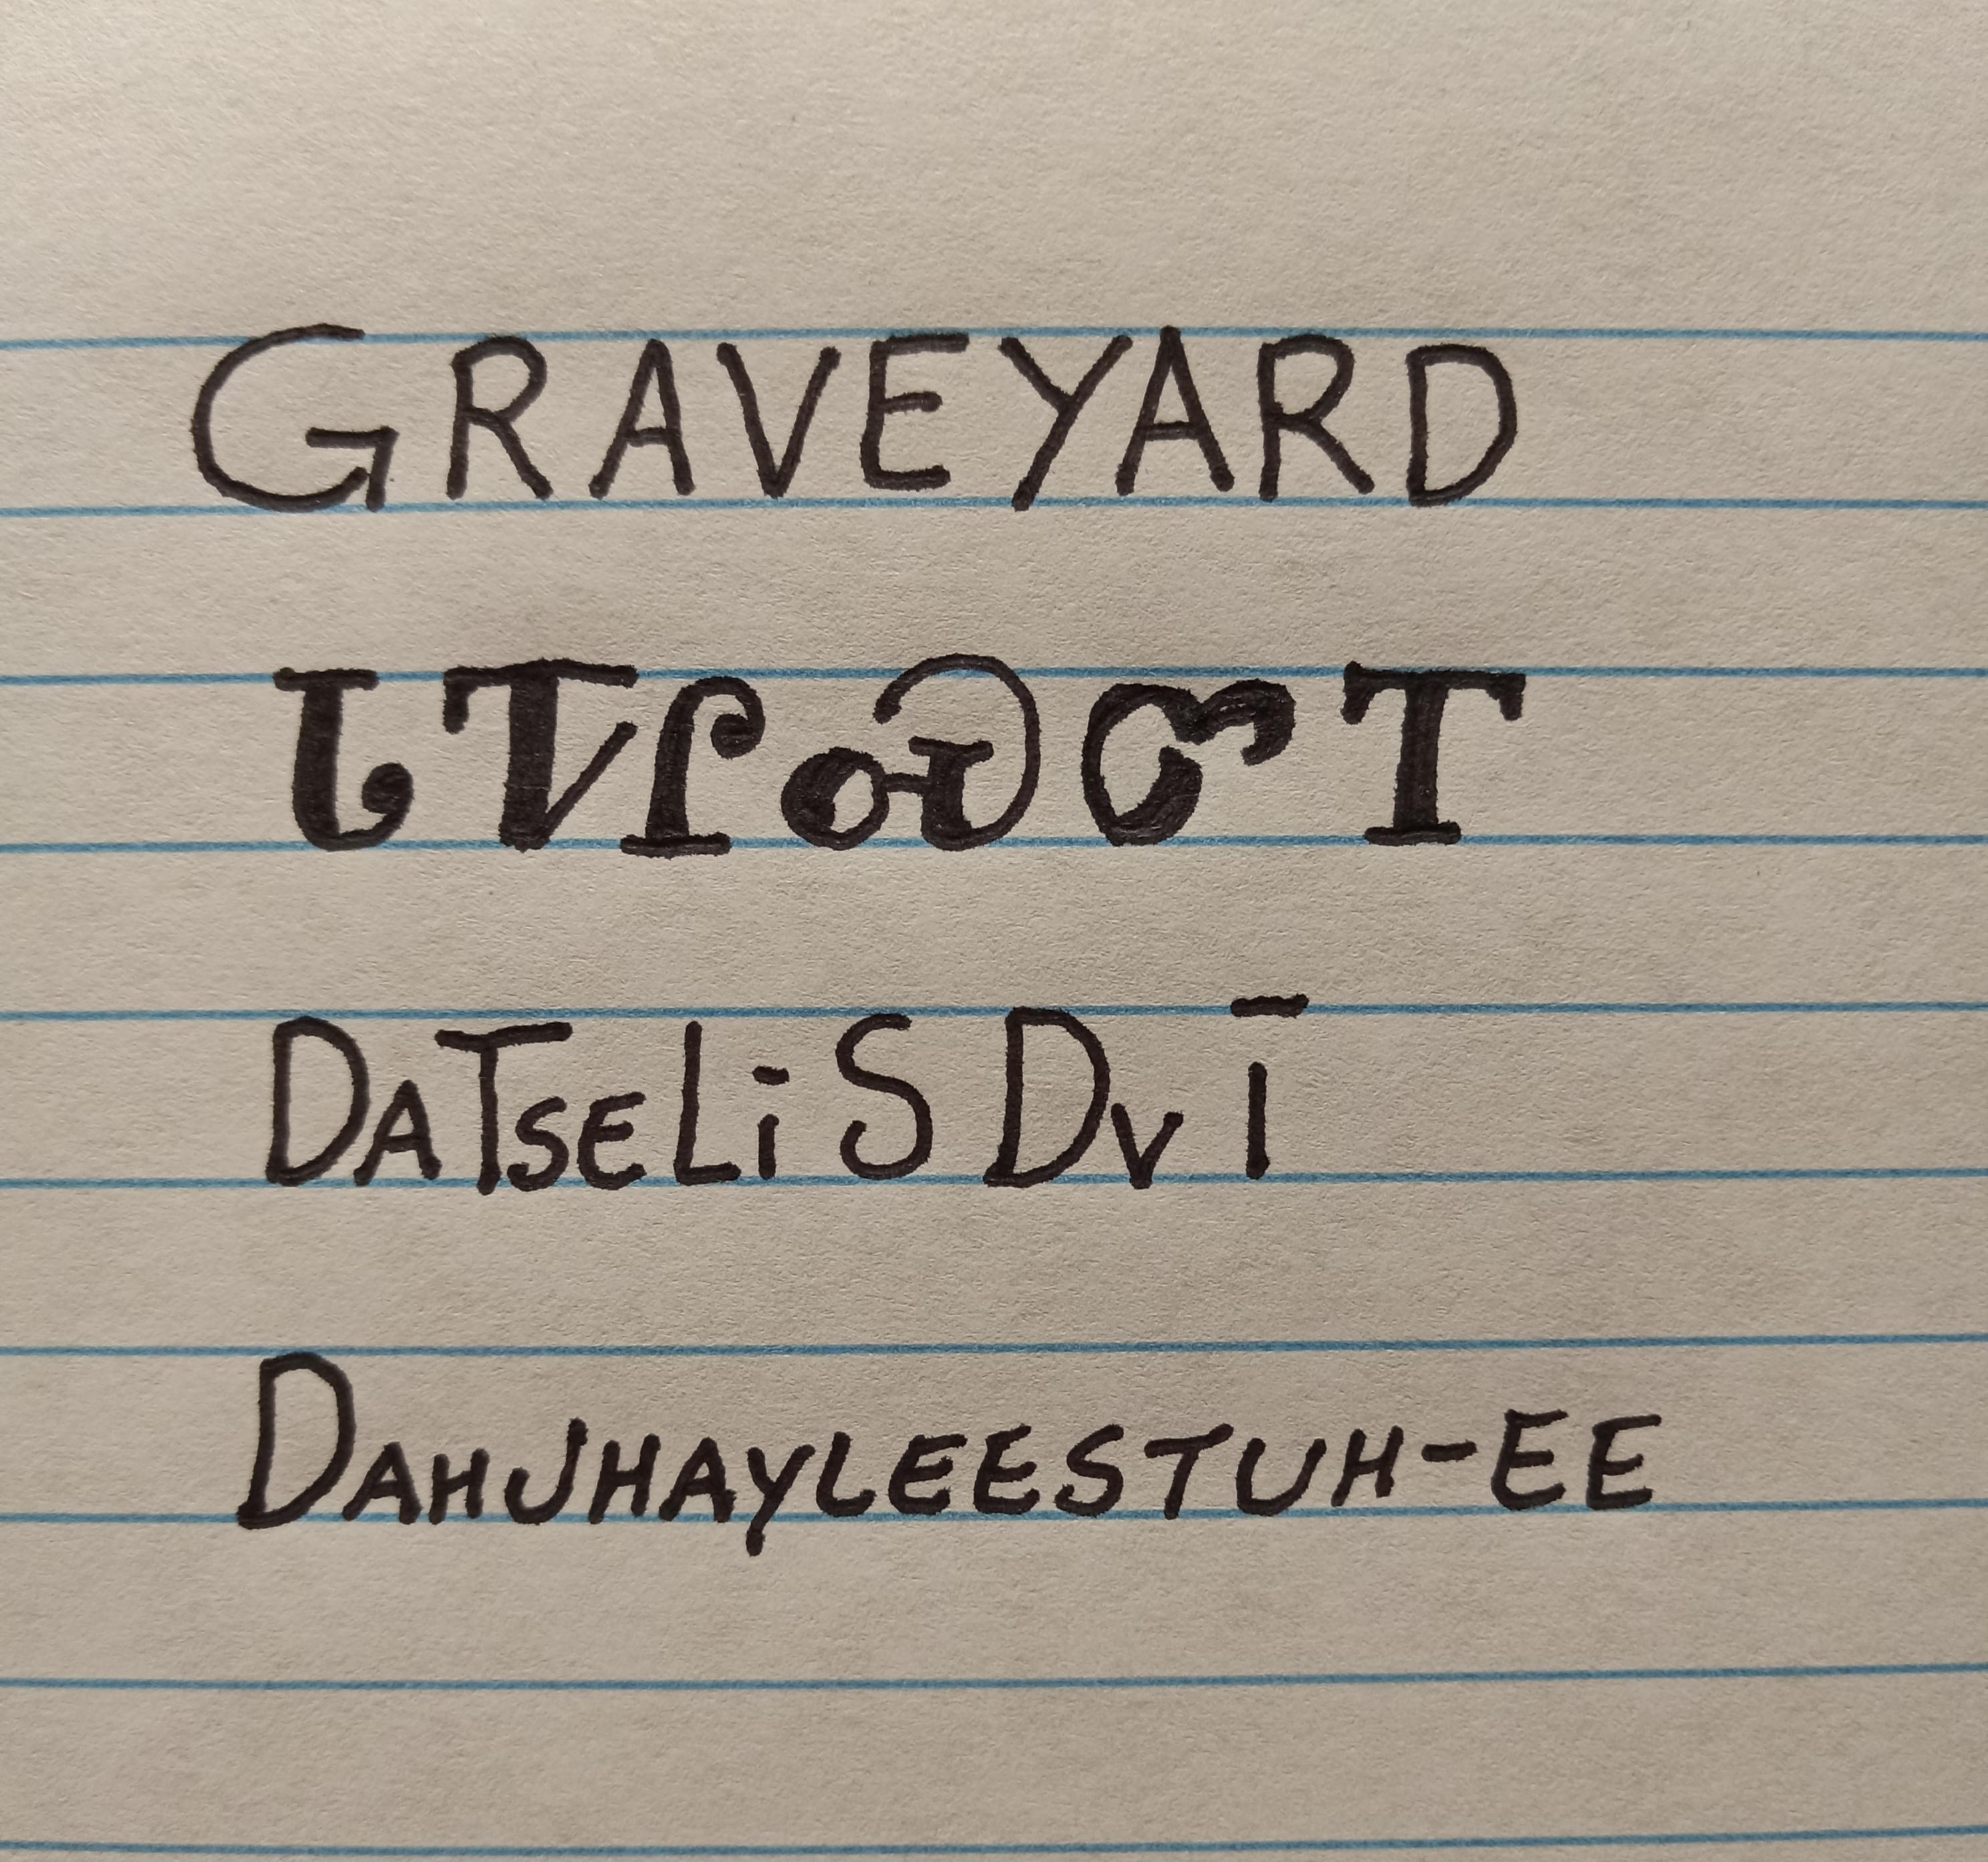 GRAVEYARD
ᏓᏤᎵᏍᏛᎢ
DATSELiSDVĪ
DAHJHAYLEESTUH-EE